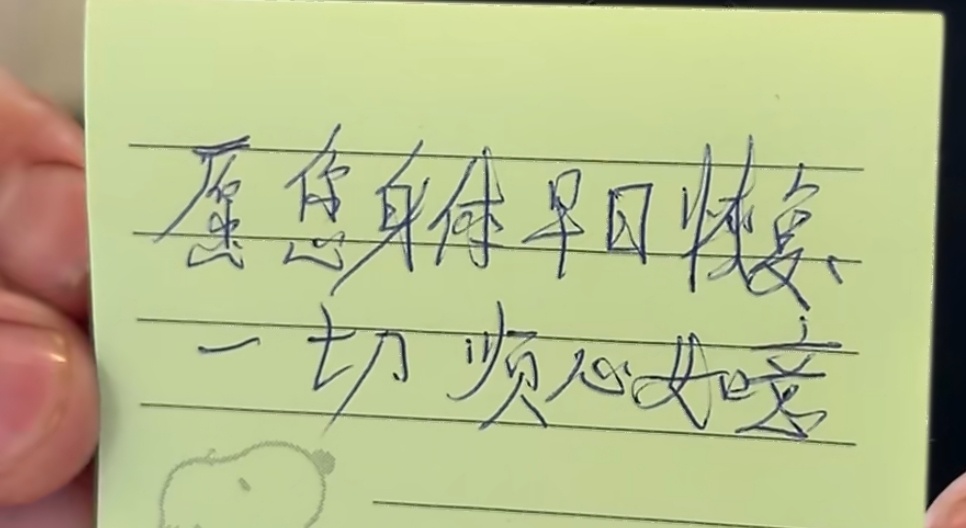 愿您身体早日恢复、
一切顺心如意